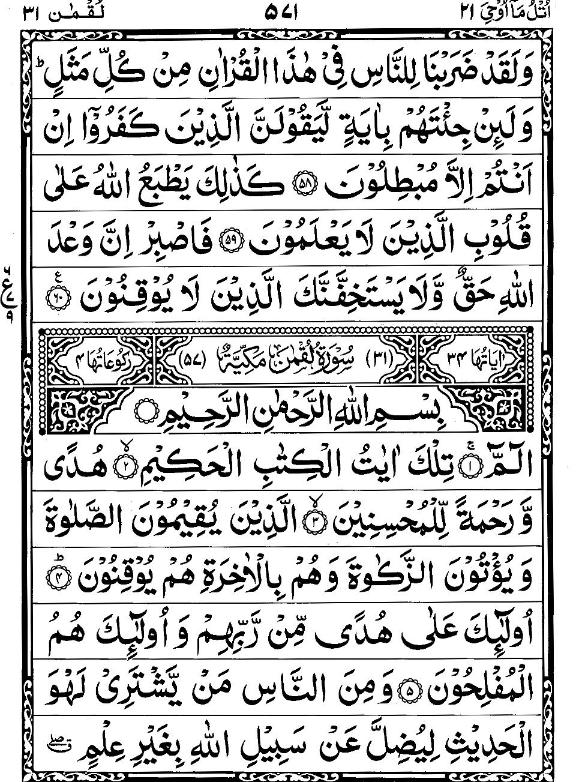 اُتْلُ مَآ اُوْحِیَ ٢١ ٥٧١ لُقْمٰن ٣١
وَلَقَدْ ضَرَبْنَا لِلنَّاسِ فِیْ هٰذَا الْقُرْاٰنِ مِنْ كُلِّ مَثَلٍ ؕ
وَلَىِٕنْ جِئْتَهُمْ بِاٰیَةٍ لَّیَقُوْلَنَّ الَّذِیْنَ كَفَرُوْۤا اِنْ
اَنْتُمْ اِلَّا مُبْطِلُوْنَ ٥٨ كَذٰلِكَ یَطْبَعُ اللّٰهُ عَلٰی
قُلُوْبِ الَّذِیْنَ لَا یَعْلَمُوْنَ ٥٩ فَاصْبِرْ اِنَّ وَعْدَ
اللّٰهِ حَقٌّ وَّلَا یَسْتَخِفَّنَّكَ الَّذِیْنَ لَا یُوْقِنُوْنَ ٦٠ ع
٦
ع
٧
٩
اٰیَاتُهَا ٣٤ (٣١) سُوْرَةُ لُقْمٰنَ مَكِّیَّةٌ (٥٧) رُكُوْعَاتُهَا ٤
بِسْمِ اللّٰهِ الرَّحْمٰنِ الرَّحِیْمِ
الٓمّٓ ١ تِلْكَ اٰیٰتُ الْكِتٰبِ الْحَكِیْمِ ٢ هُدًی
وَّرَحْمَةً لِّلْمُحْسِنِیْنَ ٣ الَّذِیْنَ یُقِیْمُوْنَ الصَّلٰوةَ
وَیُؤْتُوْنَ الزَّكٰوةَ وَهُمْ بِالْاٰخِرَةِ هُمْ یُوْقِنُوْنَ ٤ ؕ
اُولٰٓىِٕكَ عَلٰی هُدًی مِّنْ رَّبِّهِمْ وَاُولٰٓىِٕكَ هُمُ
الْمُفْلِحُوْنَ ٥ وَمِنَ النَّاسِ مَنْ یَّشْتَرِیْ لَهْوَ
الْحَدِیْثِ لِیُضِلَّ عَنْ سَبِیْلِ اللّٰهِ بِغَیْرِ عِلْمٍ